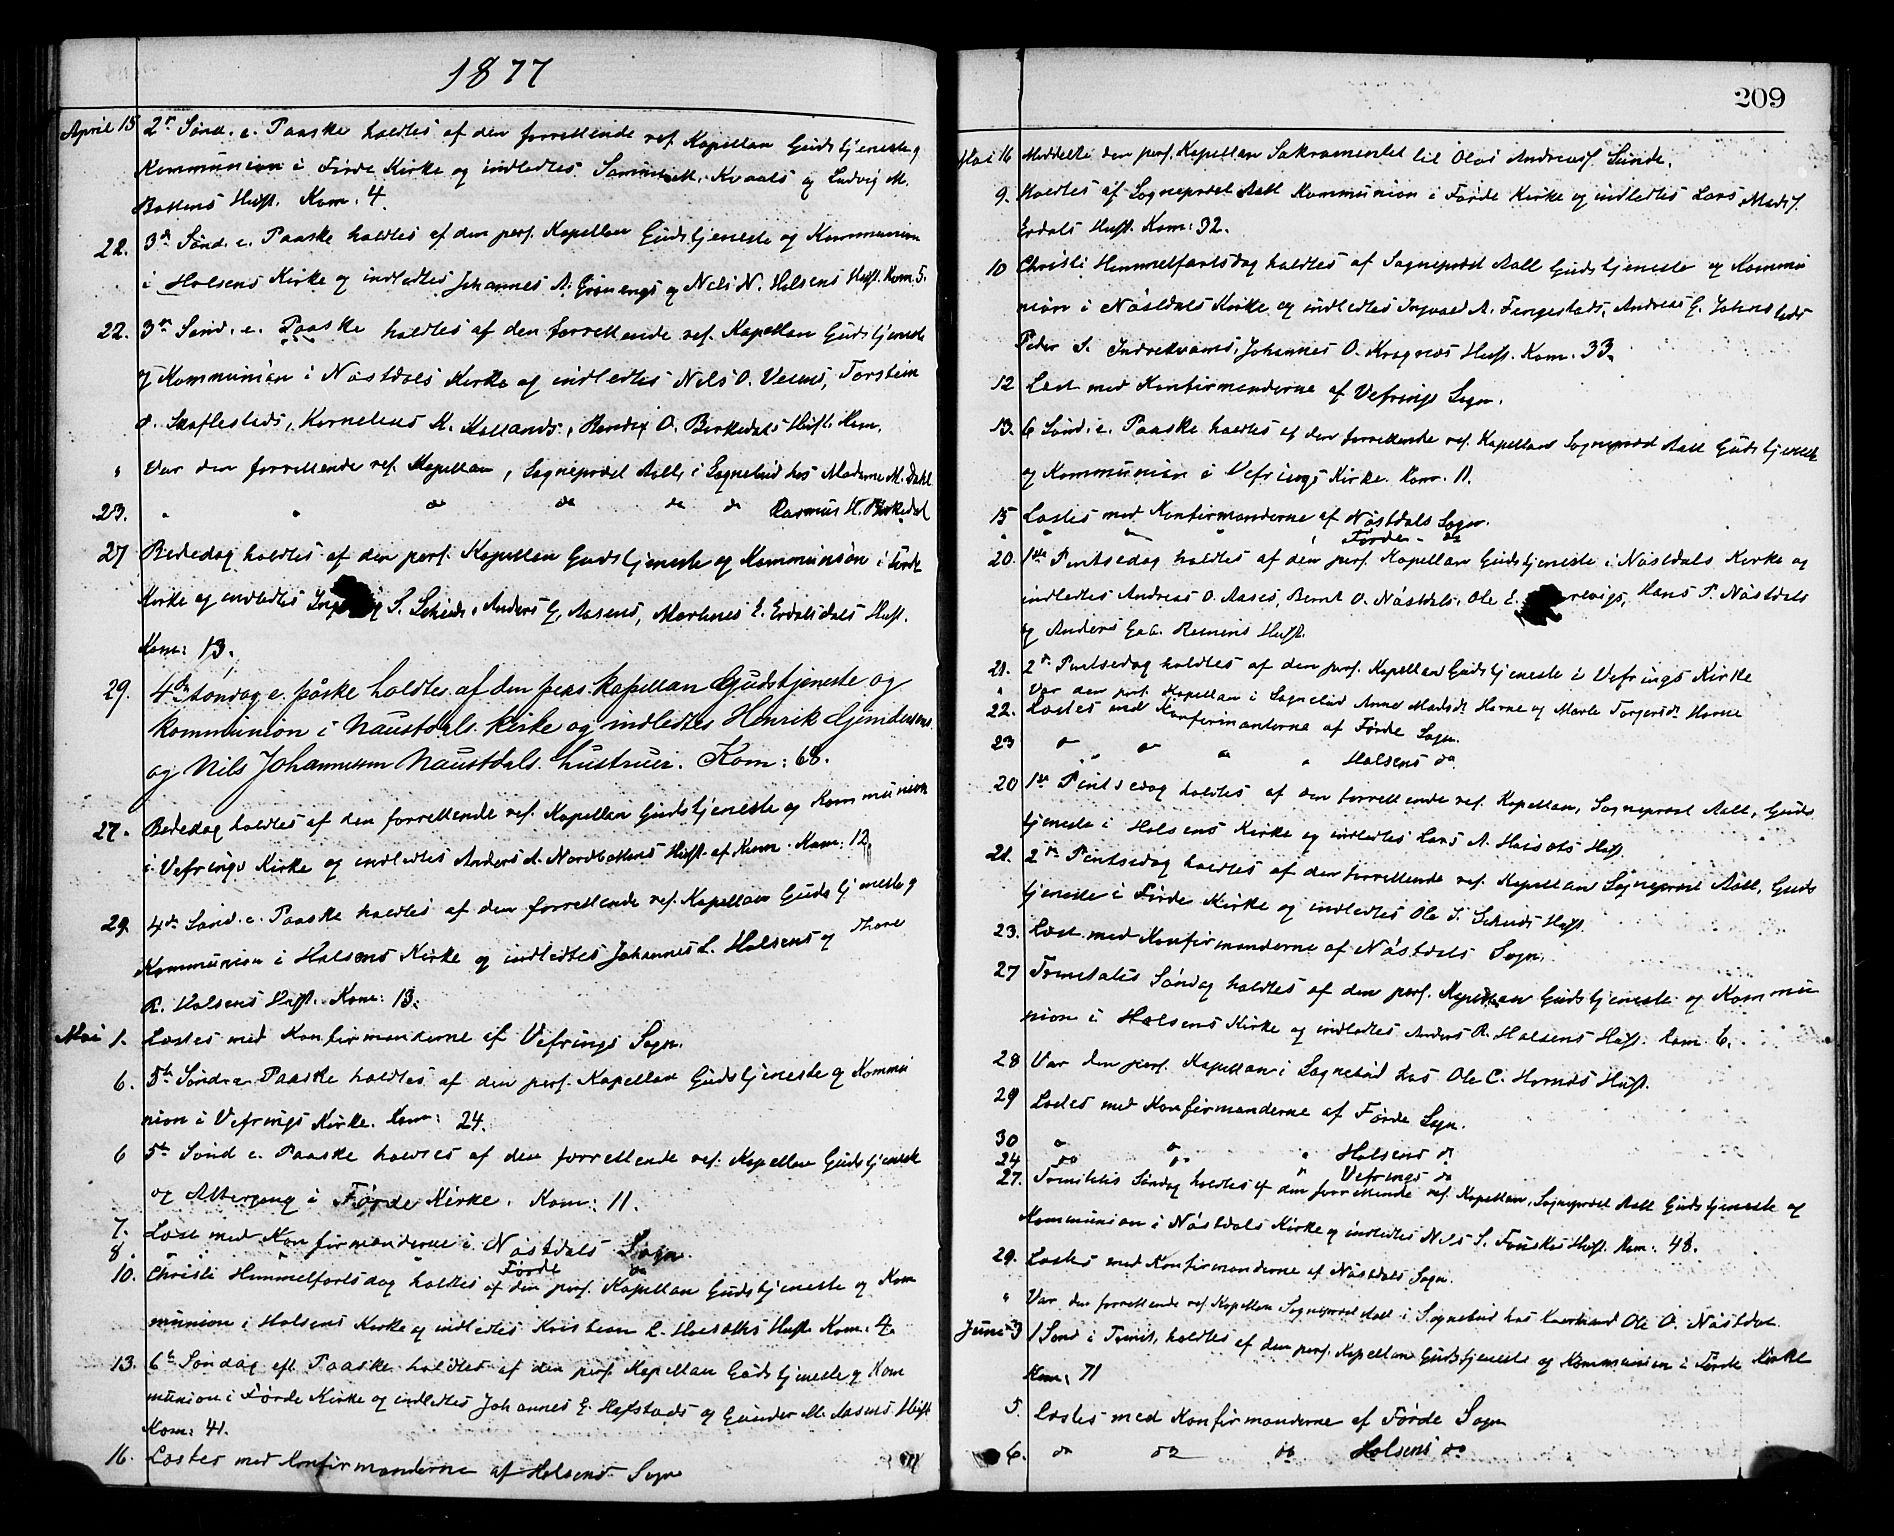 1877
April 15 2n Sønd. e. Paaske holdtes af den forrettende res. Kapellan Gudstjeneste og
Kommunion i Førde Kirke og indledtes M. Kvaals og Ludvig M.
Bottens Hust. Kom. 4.
22. 3dn Sønd. e. Paaske holdtes af den pers. Kapellan Gudstjeneste og Kommunion
i Holsens Kirke og indledtes Johannes A. Grønengs og Nels N. Holsens Hust. Kom. 5.
22. 3dn Sønd. e. Paaske holdtes af den forrettende res. Kapellan Gudstjeneste
og Kommunion i Nøstdals Kirke og indledtes Nels O. Torstein
O. Skaflesteds, Kornelius M. Kallands, Bendix O. Birkedals Hust. Kom.
" Var den forrettende res. Kapellan, Sogneprest Aall, i Sognebud hos Madame M. Dahl
23. " " do do do do Rasmus H. Birkedal
27 Bededag holdtes af den pers. Kapellan Gudstjeneste og Kommunion i Førde
Kirke og indledtes S. Anders E. Aasens, Martines E. Erdalsdals Hust.
Kom: 13.
29. 4de søndag e. påske holdtes af den pers kapellan Gudstjeneste og
kommunion i Naustdals kirke og indledtes Henrik
og Nils Johannesen Naustdals hustruer. Kom: 68.
27. Bededag holdtes af den forrettende res. Kapellan Gudstjeneste og Kommunion
i Vefrings Kirke og indledtes Anders A. Nordbottens Hust. af Kinn. Kom: 12
29. 4de Sønd. e. Paaske holdtes af den forrettende res. Kapellan Gudstjeneste og
Kommunion i Holsens Kirke og indledtes Johannes L. Holsens og Thore
R. Holsens Hust. Kom: 13.
Mai 1. Læstes med Konfirmanderne af Vefrings Sogn.
6. 5te Sønd. e. Paaske holdtes af den pers. Kapellan Gudstjeneste og Kommu
nion i Vefrings Kirke. Kom: 24.
6 5te Sønd e. Paaske holdtes af den forrettende res. Kapellan Gudstjeneste
og Altergang i Førde Kirke. Kom: 11.
7. Læst med Konfirmanderne i Nøstdals Sogn.
8. " " " Førde do
10. Christi Himmelfartsdag holdtes af den pers. Kapellan Gudstjeneste og Kom
munion i Holsens Kirke og indledtes Kristian L. Hust. Kom: 4.
13. 6te Søndag eft. Paaske holdtes af den pers. Kapellan Gudstjeneste og Kom
munion i Førde Kirke og indledtes Johannes E. Hafstads og Gunder M. Aasens Hust
Kom: 41.
16. Læstes med Konfirmanderne af Holsens Sogn
209
Mai 16 Meddelte den pers. Kapellan Sakramentet til Olai Andreass. Sunde.
9. Holdtes af Sogneprest Aall Kommunion i Førde Kirke og indledtes Lars Mads.
Erdals Hust. Kom: 32.
10 Christi Himmelfartsdag holdtes af Sogneprest Aall Gudstjeneste og Kommu
nion i Nøstdals Kirke og indledtes Ingvald A. Fimgestads, Andreas E.
Peder S. Indrekvams, Johannes O. Hust. Kom. 33.
12 Læst med Konfirmanderne af Vefrings Sogn.
13. 6 Sønd. e. Paaske holdtes af den forrettende res. Kapellan Sogneprest Aall Gudstjeneste
og Kommunion i Vefrings Kirke. Kom. 11.
15 Læstes med Konfirmanderne af Nøstdals Sogn.
" " " " " Førde do
20. 1ste Pintsedag holdtes af den pers. Kapellan Gudstjeneste i Nøstdals Kirke og
indledtes Andreas O. Aases, Bernt O. Nøstdals, Ole E. Hans P. Nøstdals
og Anders Hust.
21. 2n Pintsedag holdtes af den pers. Kapellan Gudstjeneste i Vefrings Kirke
" Var den pers. Kapellan i Sognebud Anne Madsdr. Horne og Marte Torgersdr. Horne
22. Læstes med Konfirmanterne af Førde Sogn.
23 " " " " Holsens do.
20 1ste Pintsedag holdtes af den forrettende res. Kapellan, Sogneprest Aall, Guds
tjeneste i Holsens Kirke og indledtes Lars A. Hust.
21. 2n Pintsedag holdtes af den forrettende res. Kapellan Sogneprest Aall, Guds
tjeneste i Førde Kirke og indledtes Ole S. Hust.
23. Læst med Konfirmanderne af Nøstdals Sogn.
27 Trinitatis Søndag holdtes af den pers. Kapellan Gudstjeneste og Kommu
nion i Holsens Kirke og indledtes Anders R. Holsens Hust. Kom 6.
28 Var den pers. Kapellan i Sognebud hos Ole C. Hornes Hust.
29 Læstes med Konfirmanderne af Førde Sogn.
30 " " " Holsens do
24 do do " Vefrings do
27. Trinitatis Søndag holdtes af den forrettende res. Kapellan, Sogneprest Aall Gudstjeneste og
Kommunion i Nøstdals Kirke og indledtes Nils S. Hust. Kom: 48.
29. Læstes med Konfirmanderne af Nøstdals Sogn.
" Var den forrettende res. Kapellan Sogneprest Aall i Sognebud hos Ole O. Nøstdal.
Juni 3 1 Sønd i Trinit. holdtes af den pers. Kapellan Gudstjeneste og Kommunion i Førde Kirke
Kom: 71
5. Læstes med Konfirmanderne af Førde Sogn
6. do do do Holsens do